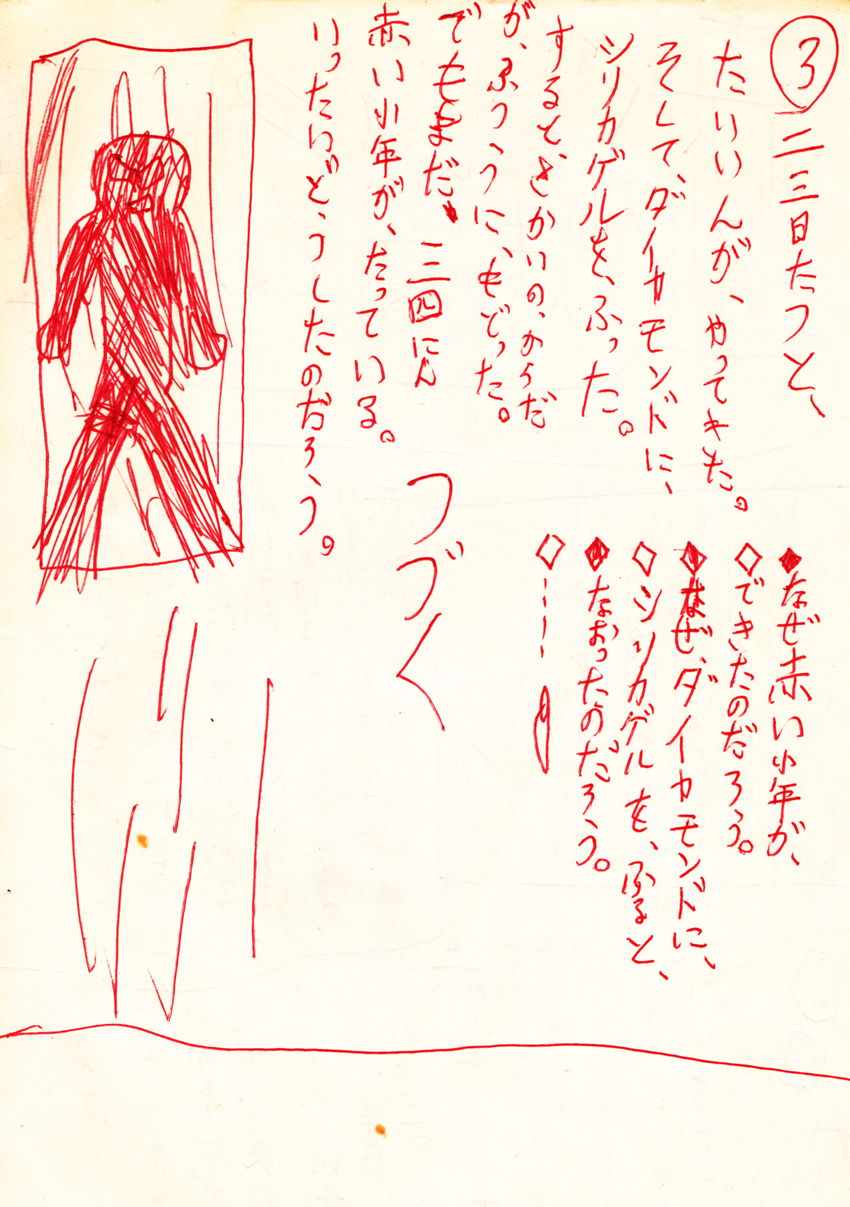 ③二三日たつと、
たいいんが、やってきた。
そして、ダイカモンドに、
シリカゲルを、ふった。
すると、さかいの、からだ
が、ふつ、うに、もどった。
でもまだ、三四にん
赤い少年が、たっている。
いったいど、うしたのだろ、う。
つづく
◆なぜ赤い少年が、
◇できたのだろう。
◆なぜ、ダイカモンドに、
◇シリカゲルを、ふると、
◆なおったのだろ、う。